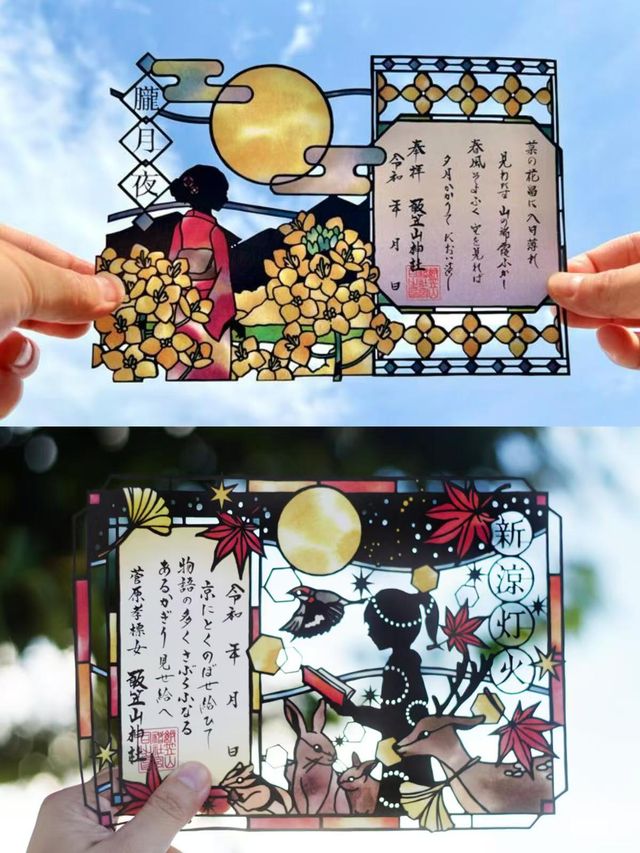 朧月夜
菜の花畠に入日薄れ
見わたす山の端霞ふかし
春風そよふく空を見れば
夕月かかりてにおい淡し
奉拝 飯笠山神社
令和 年 月 日
新涼灯火
令和 年 月 日
京にとくのぼせ給ひて
物語の多くさぶらふなる
あるかぎり見せ給へ
菅原孝標女 飯笠山神社